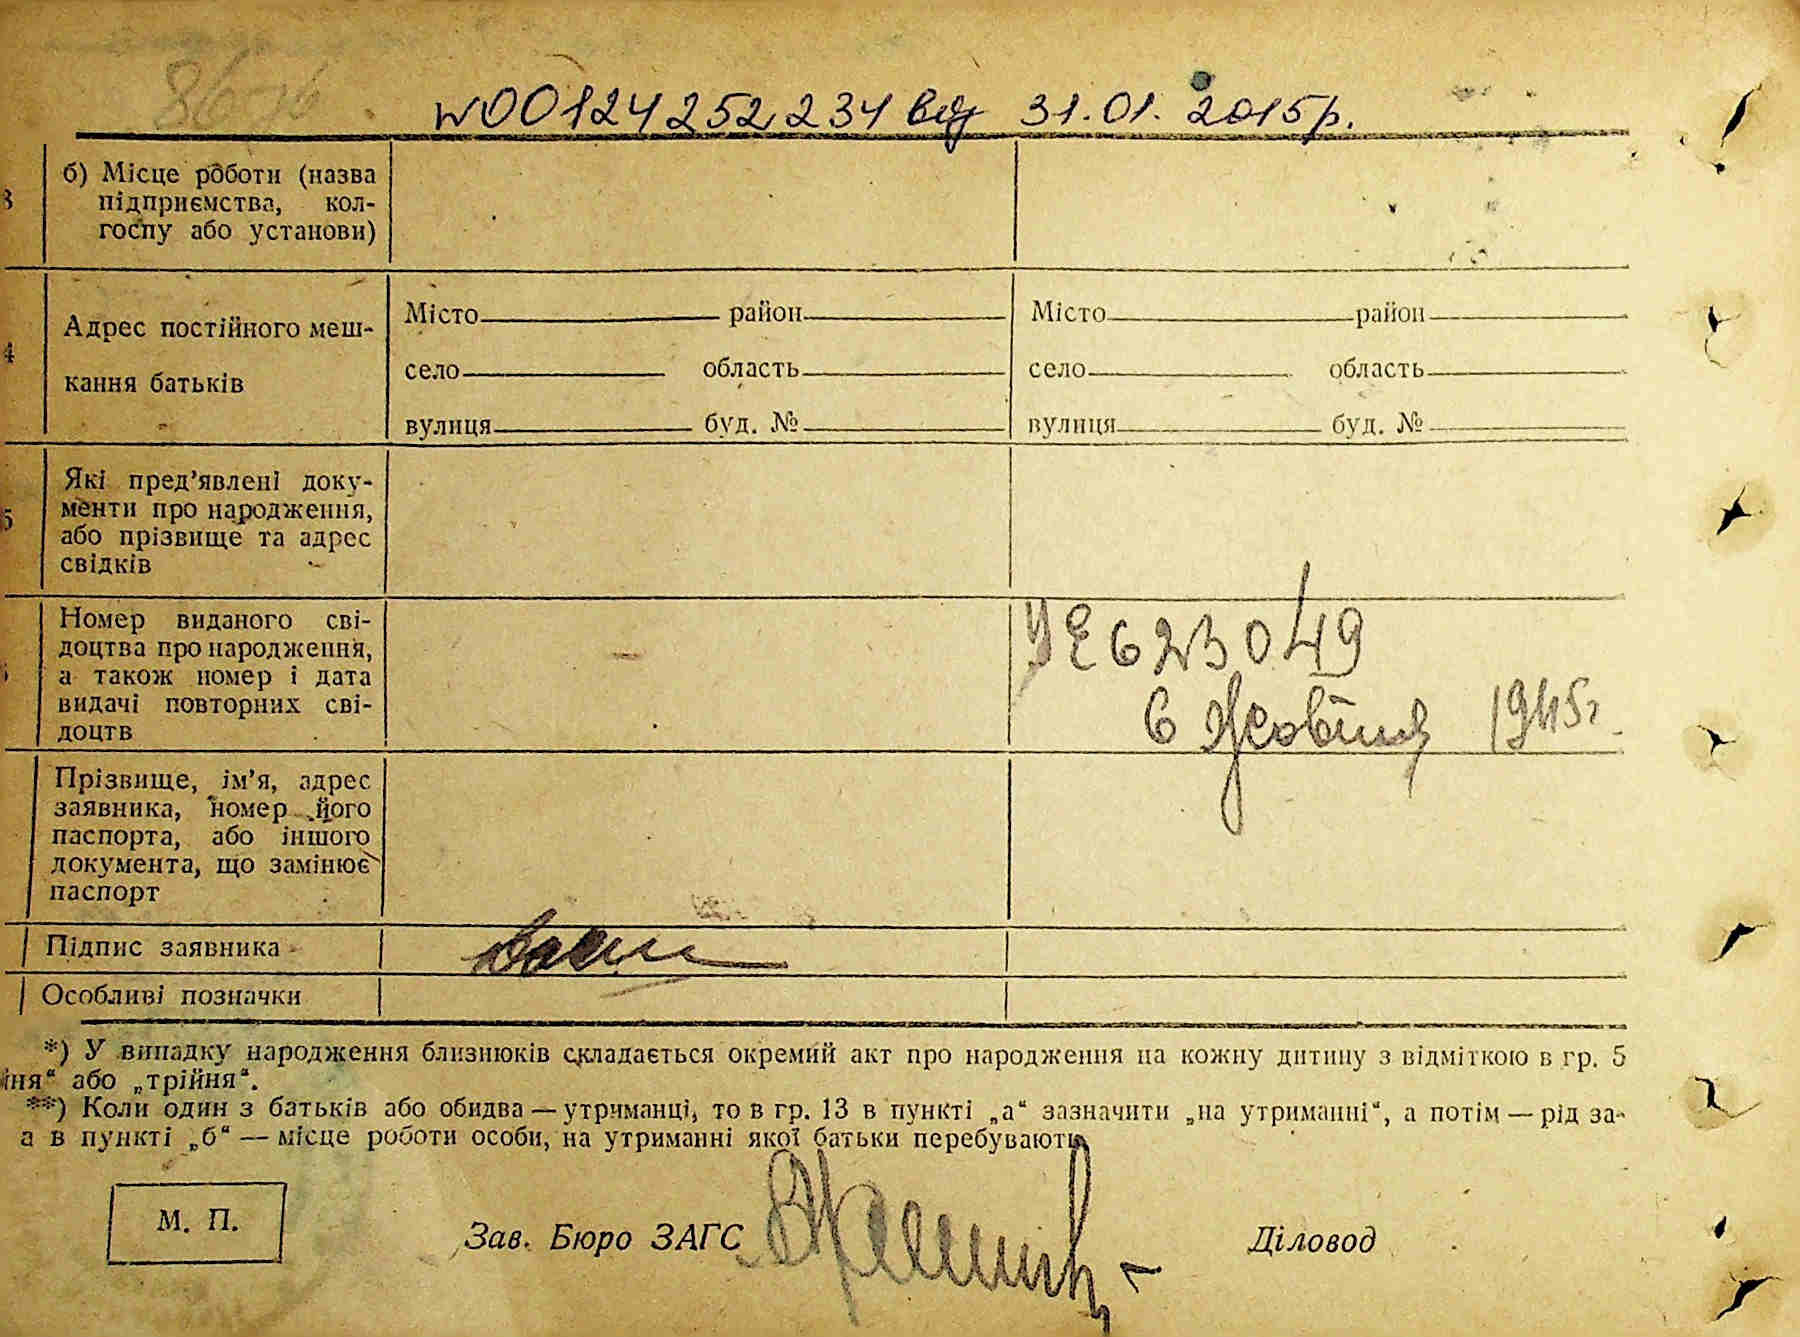 86-16
w00124252234 від 31.01.2015р.
б) Місце роботи (назва
підприємства, кол-
госпу або установи)
4
Адрес постійного меш-
кання батьків
Місто район Місто район
село область село область
вулиця буд. № вулиця буд. №
5
Які пред’явлені доку-
менти про народження,
або прізвище та адрес
свідків
Номер виданого сві-
доцтва про народження,
а також номер і дата
видачі повторних сві-
доцтв
УЕ 623049
6 Жовтня 1945г.
Прізвище, ім’я, адрес
заявника, номер його
паспорта, або іншого
документа, що замінює
паспорт
Підпис заявника
Особливі позначки
*) У випадку народження близнюків складається окремий акт про народження на кожну дитину з відміткою в гр. 5
йня“ або „трійня“.
**) Коли один з батьків або обидва — утриманці, то в гр. 13 в пункті „а“ зазначити „на утриманні“, а потім — рід за-
а в пункті „б“ — місце роботи особи, на утриманні якої батьки перебувають.
М. П.
Зав. Бюро ЗАГС Діловод